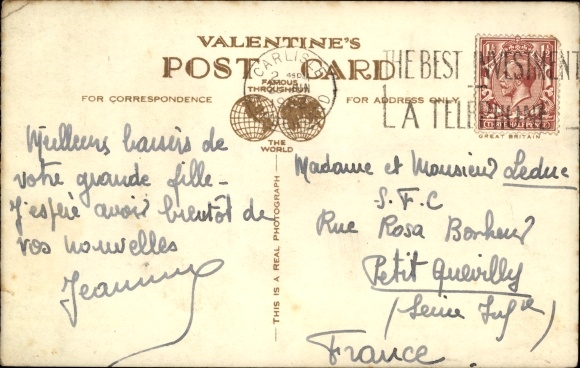 VALENTINE'S
POST CARD
FAMOUS
THROUGHOUT
THE
WORLD
FOR CORRESPONDENCE
FOR ADDRESS ONLY
CARLISLE
THE BEST INVESTMENT
A TELEPHONE
GREAT BRITAIN
THIS IS A REAL PHOTOGRAPH
Meilleurs baisers de
votre grande fille –
J'espère avoir bientôt de
vos nouvelles
Jeannine
Madame et Monsieur Leduc
S.F.C
Rue Rosa Bonheur
Petit Quevilly
(Seine Infre
France